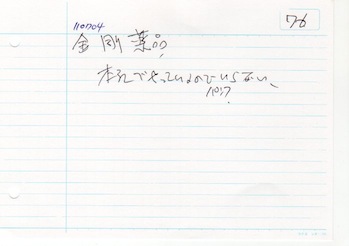 110704
76
金剛薬品
本社でやっているのでいらない、